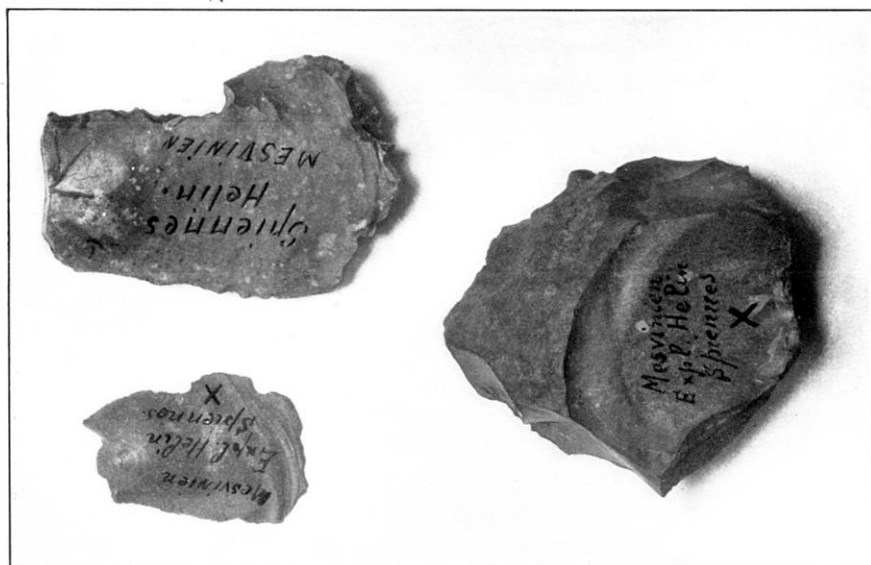 Spiennes
Helin.
MESVINIEN
Mesvinien
Expl. Helin
Spiennes
X
Mesvinien
Expl. Helin
Spiennes
X